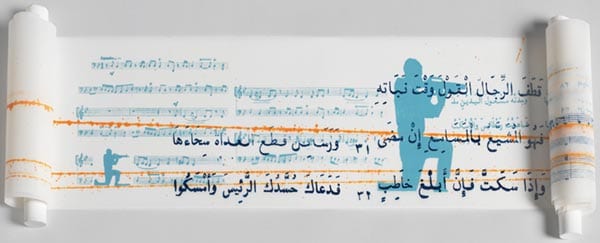 قَطَفَ الرِّجَالُ الْقَوْلَ وَقْتَ نَبَاتِهِ
فَهُوَ الْمُشَيَّعُ بِالْمَسَامِعِ إِنْ مَضَى ٣١ وَرَسَائِلٌ قَطَعَ الْعُدَاةُ سِحَاءَهَا
وَإِذَا سَكَتَّ فَإِنَّ أَبْلَغَ خَاطِبٍ ٣٢ فَدَعَاكَ حُسَّدُكَ الرَّئِيسَ وَأَمْسَكُوا